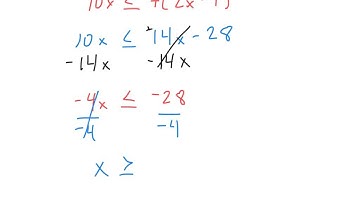 10x ≤
10x ≤ 14x - 28
-14x -14x
-4x ≤ -28
-4 -4
x ≥